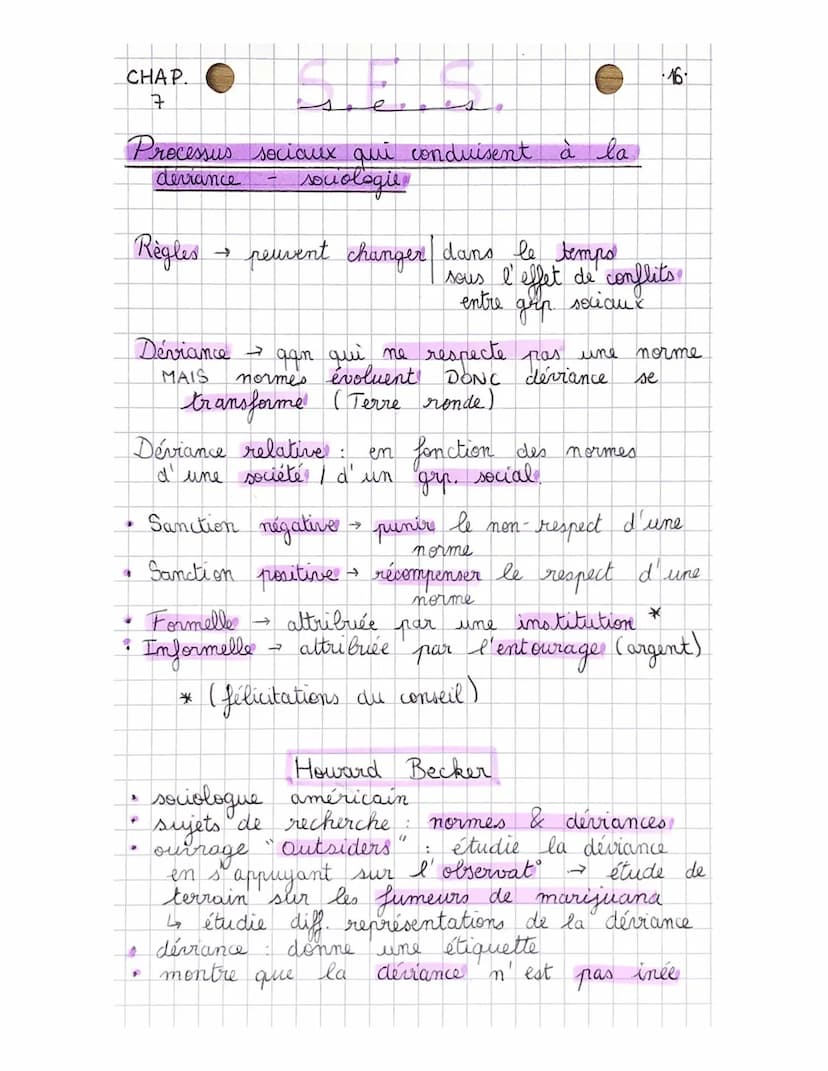 CHAP. 7
S.E.S.
s.e.s.
·16·
Processus sociaux qui conduisent à la
déviance - sociologie
Règles → peuvent changer | dans le temps
sous l'effet de conflits
entre grp. sociaux
Déviance → qqn qui ne respecte pas une norme
MAIS normes évoluent DONC déviance se
transforme (Terre ronde)
Déviance relative : en fonction des normes
d'une société / d'un grp. social.
• Sanction négative → punir le non-respect d'une
norme
• Sanction positive → récompenser le respect d'une
norme
• Formelle → attribuée par une institution *
• Informelle → attribuée par l'entourage (argent)
* (félicitations du conseil)
Howard Becker
• sociologue américain
• sujets de recherche : normes & déviances
• ouvrage "Outsiders" : étudie la déviance
en s'appuyant sur l'observat° → étude de
terrain sur les fumeurs de marijuana
↳ étudie diff. représentations de la déviance
• déviance : donne une étiquette
• montre que la déviance n'est pas inée